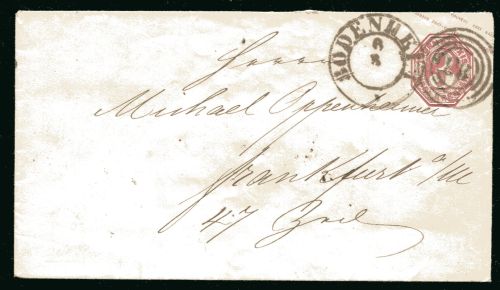 BODENHEIM
6
8
Herrn
Michael Oppenheimer
Frankfurt a/M
47 Zeil